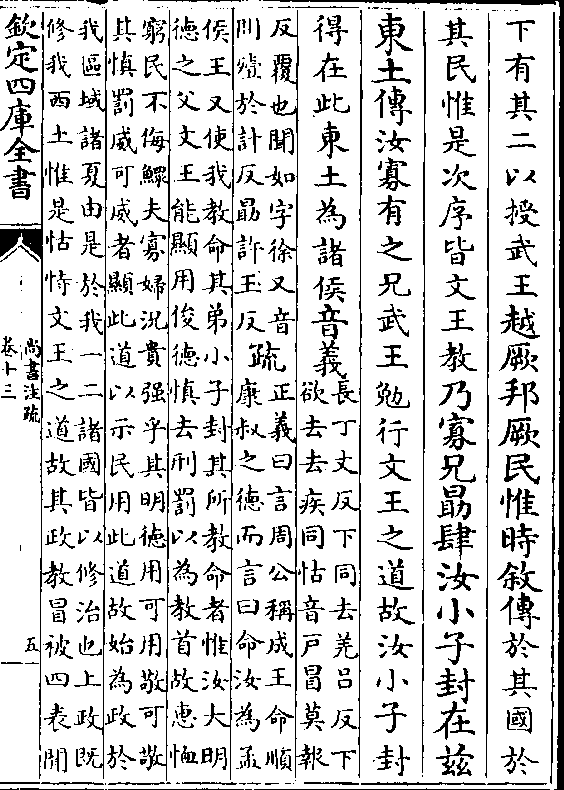 下有其二以授武王越厥邦厥民惟時敘傳於其國於
其民惟是次序皆文王教乃寡兄勗肆汝小子封在茲
東土傳汝寡有之兄武王勉行文王之道故汝小子封
得在此東土為諸侯音義
長丁丈反下同去羌呂反下
欲去去疾同怙音戸冒莫報
反覆也聞如字徐又音
問殪於計反勗許玉反
疏
正義曰言周公稱成王命順
康叔之德而言曰命汝為孟
侯王又使我教命其弟小子封其所教命者惟汝大明
德之父文王能顯用俊德慎去刑罰以為教首故惠恤
窮民不侮鰥夫寡婦況貴强乎其明德用可用敬可敬
其慎罰威可威者顯此道以示民用此道故始為政於
我區域諸夏由是於我一二諸國皆以修治也上政既
修我西土惟是怙恃文王之道故其政教冒被四表聞
欽定四庫全書
尚書注疏
卷十三
五